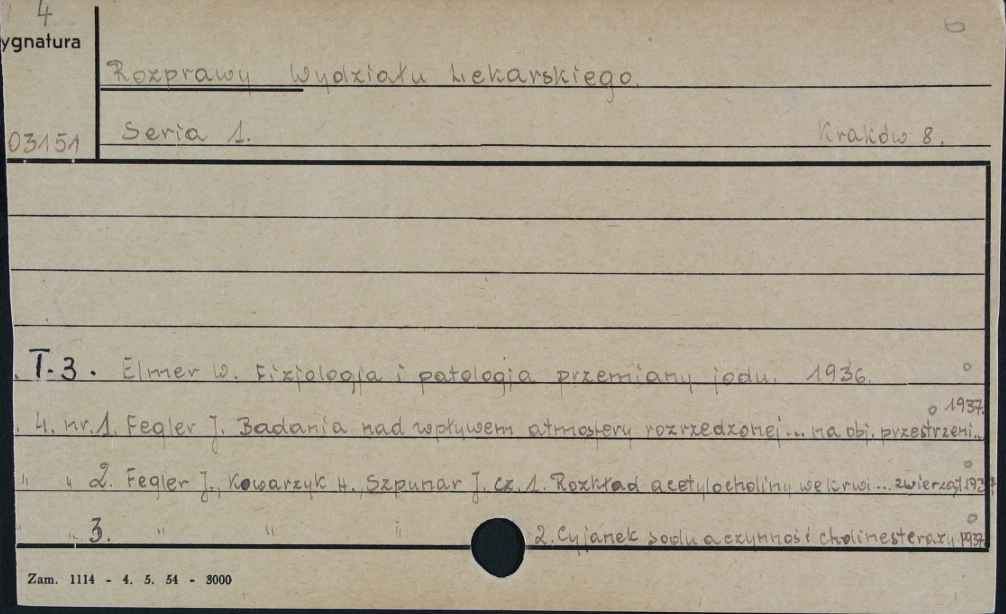 4
ygnatura
Rozprawy Wydziału Lekarskiego.
03151
Seria 1. Kraków 8.
T.3. Elmer W. Fizjologja i patologja przemiany jodu. 1936.
1937.
4. nr.1. Fegler J. Badania nad wpływem atmosfery rozrzedzonej... na obj. przestrzeni...
" " 2. Fegler J., Kowarzyk H., Szpunar J. cz. 1. Rozkład acetylocholiny we krwi... zwierząt 1937
" 3. " " " 2. Cyjanek sodu a czynność cholinesterazy 1937.
Zam. 1114 - 4. 5. 54 - 3000